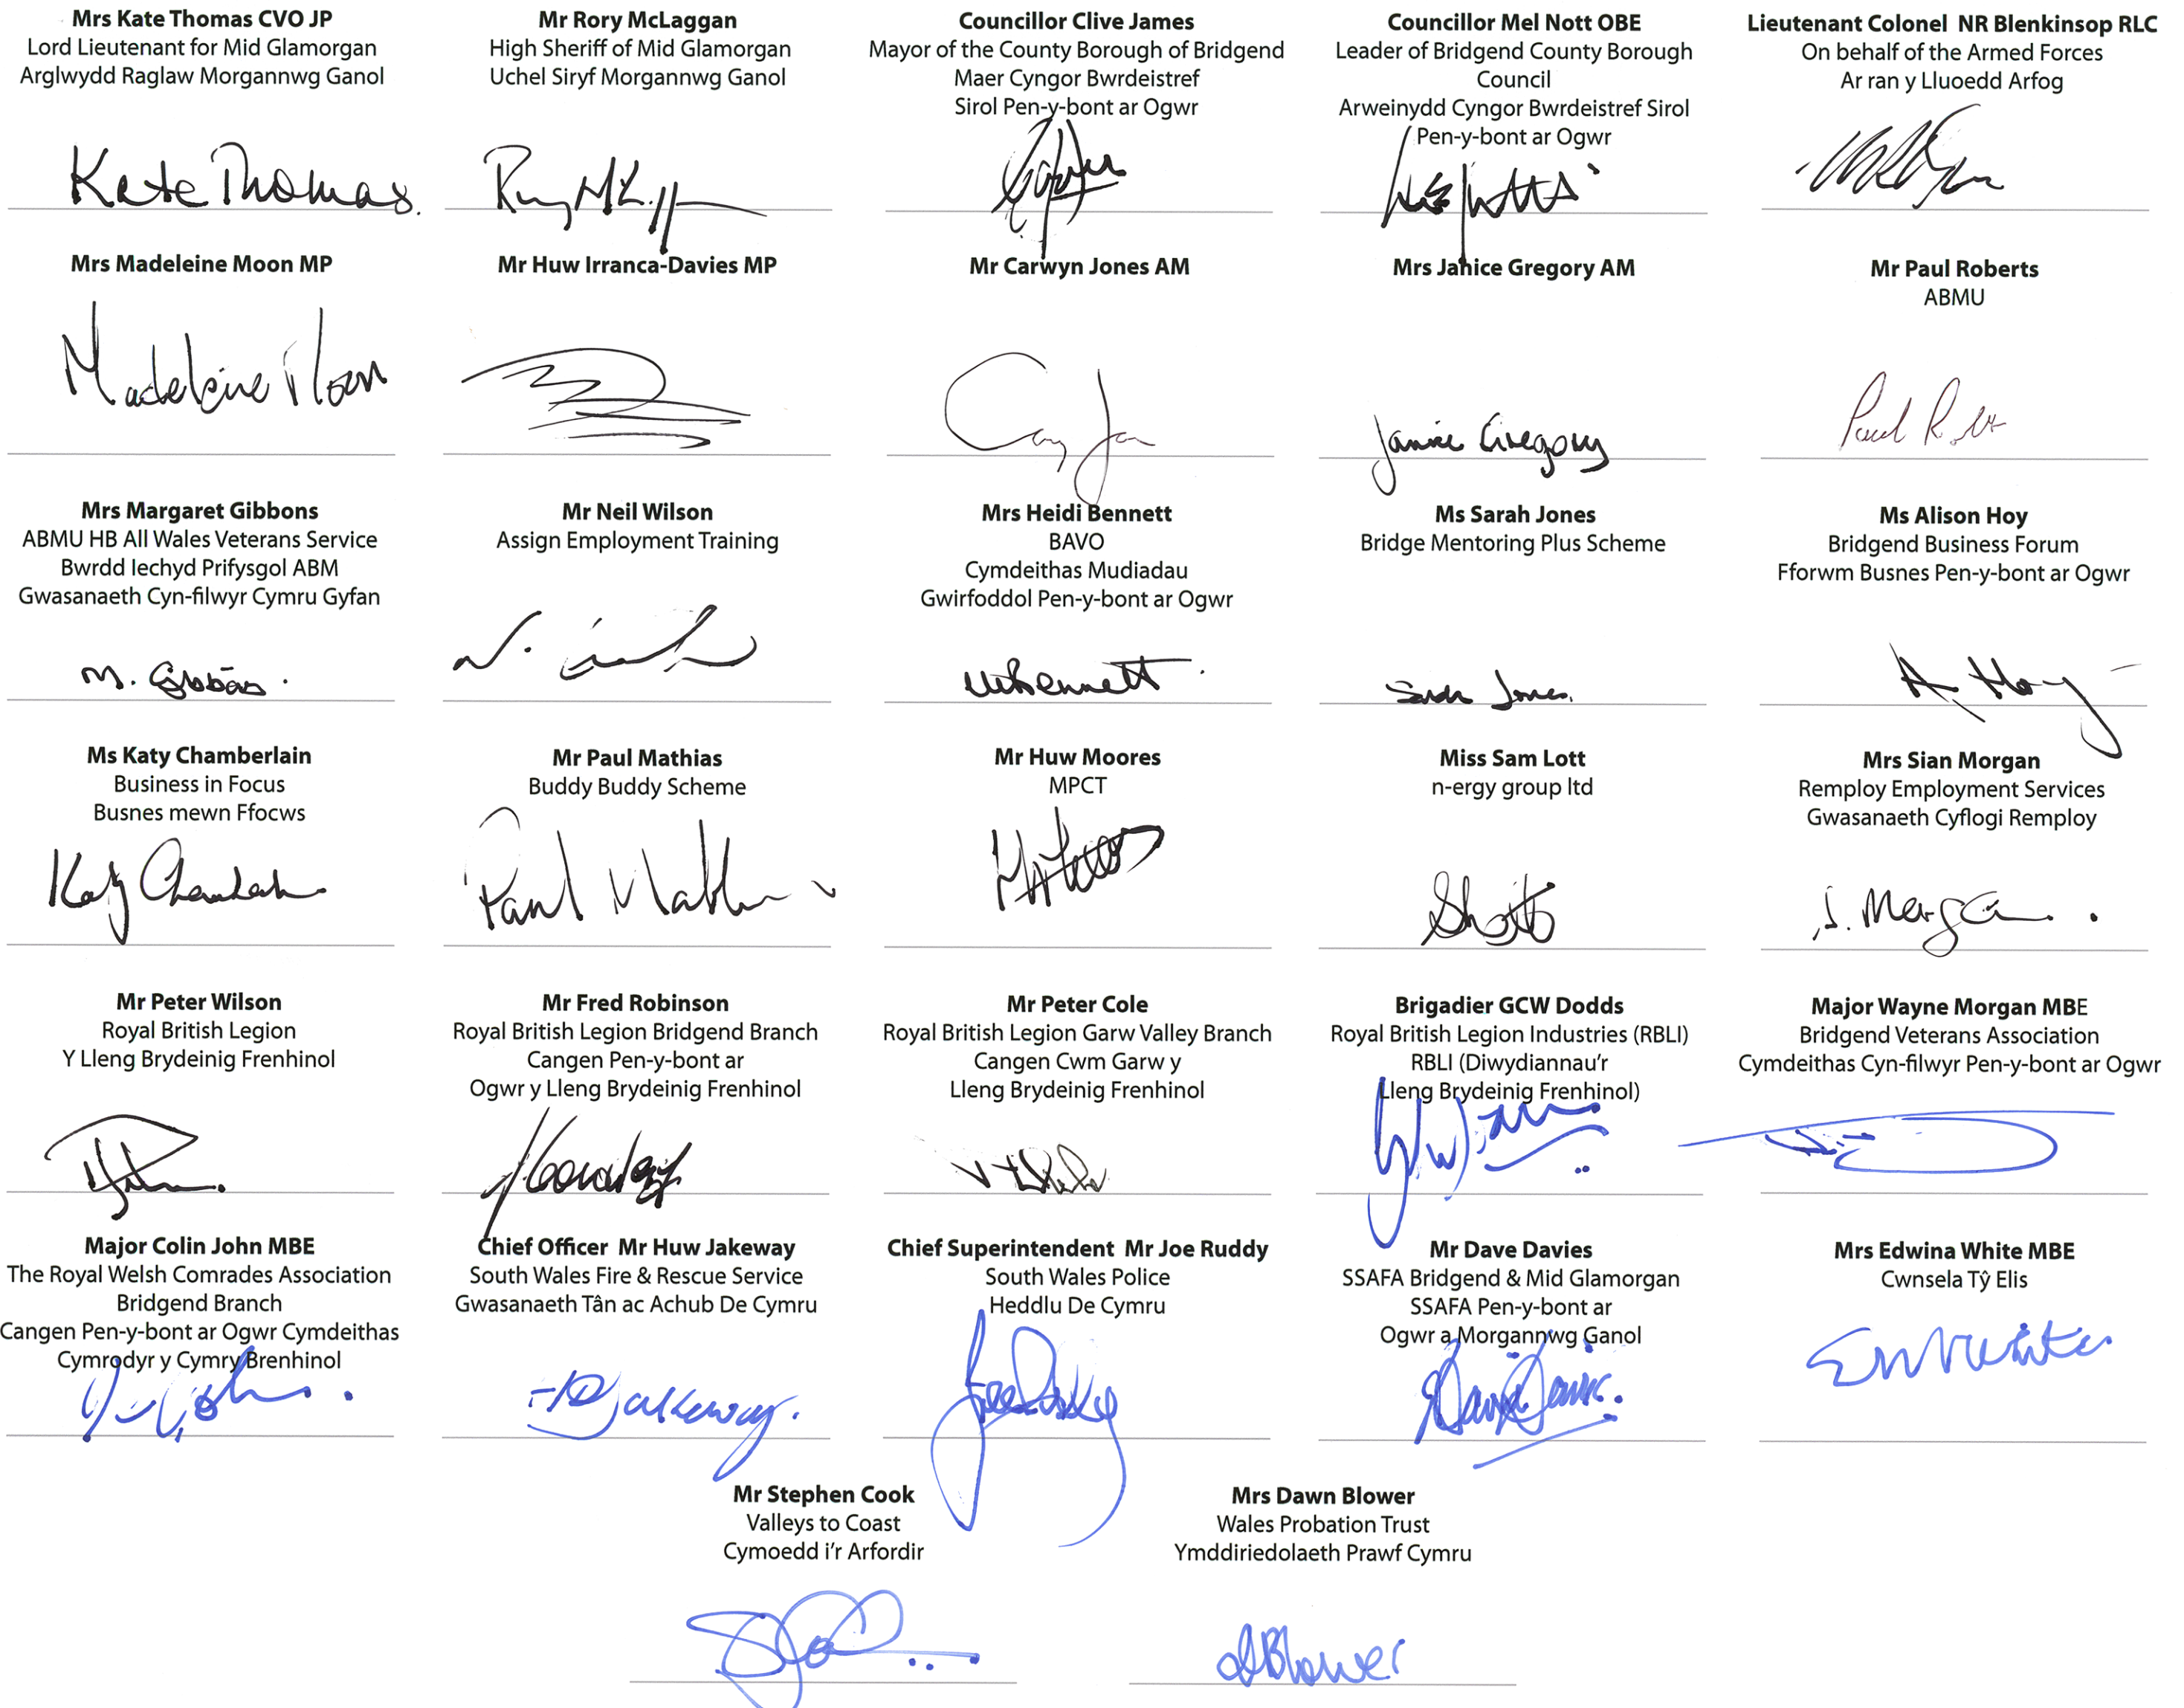 Mrs Kate Thomas CVO JP
Lord Lieutenant for Mid Glamorgan
Arglwydd Raglaw Morgannwg Ganol
Kate Thomas.
Mr Rory McLaggan
High Sheriff of Mid Glamorgan
Uchel Siryf Morgannwg Ganol
Councillor Clive James
Mayor of the County Borough of Bridgend
Maer Cyngor Bwrdeistref
Sirol Pen-y-bont ar Ogwr
Councillor Mel Nott OBE
Leader of Bridgend County Borough
Council
Arweinydd Cyngor Bwrdeistref Sirol
Pen-y-bont ar Ogwr
Lieutenant Colonel NR Blenkinsop RLC
On behalf of the Armed Forces
Ar ran y Lluoedd Arfog
Mrs Madeleine Moon MP
Madeleine Moon
Mr Huw Irranca-Davies MP
Mr Carwyn Jones AM
Mrs Janice Gregory AM
Janice Gregory
Mr Paul Roberts
ABMU
Mrs Margaret Gibbons
ABMU HB All Wales Veterans Service
Bwrdd Iechyd Prifysgol ABM
Gwasanaeth Cyn-filwyr Cymru Gyfan
M. Gibbons.
Mr Neil Wilson
Assign Employment Training
Mrs Heidi Bennett
BAVO
Cymdeithas Mudiadau
Gwirfoddol Pen-y-bont ar Ogwr
Ms Sarah Jones
Bridge Mentoring Plus Scheme
Sarah Jones.
Ms Alison Hoy
Bridgend Business Forum
Fforwm Busnes Pen-y-bont ar Ogwr
A Hoy
Ms Katy Chamberlain
Business in Focus
Busnes mewn Ffocws
Katy Chamberlain
Mr Paul Mathias
Buddy Buddy Scheme
Paul Mathias
Mr Huw Moores
MPCT
Miss Sam Lott
n-ergy group ltd
Mrs Sian Morgan
Remploy Employment Services
Gwasanaeth Cyflogi Remploy
S. Morgan.
Mr Peter Wilson
Royal British Legion
Y Lleng Brydeinig Frenhinol
Mr Fred Robinson
Royal British Legion Bridgend Branch
Cangen Pen-y-bont ar
Ogwr y Lleng Brydeinig Frenhinol
Mr Peter Cole
Royal British Legion Garw Valley Branch
Cangen Cwm Garw y
Lleng Brydeinig Frenhinol
Brigadier GCW Dodds
Royal British Legion Industries (RBLI)
RBLI (Diwydiannau'r
Lleng Brydeinig Frenhinol)
Major Wayne Morgan MBE
Bridgend Veterans Association
Cymdeithas Cyn-filwyr Pen-y-bont ar Ogwr
Major Colin John MBE
The Royal Welsh Comrades Association
Bridgend Branch
Cangen Pen-y-bont ar Ogwr Cymdeithas
Cymrodyr y Cymry Brenhinol
Chief Officer Mr Huw Jakeway
South Wales Fire & Rescue Service
Gwasanaeth Tân ac Achub De Cymru
Jakeway.
Chief Superintendent Mr Joe Ruddy
South Wales Police
Heddlu De Cymru
Mr Dave Davies
SSAFA Bridgend & Mid Glamorgan
SSAFA Pen-y-bont ar
Ogwr a Morgannwg Ganol
Mrs Edwina White MBE
Cwnsela Tŷ Elis
Mr Stephen Cook
Valleys to Coast
Cymoedd i'r Arfordir
Mrs Dawn Blower
Wales Probation Trust
Ymddiriedolaeth Prawf Cymru
DBlower